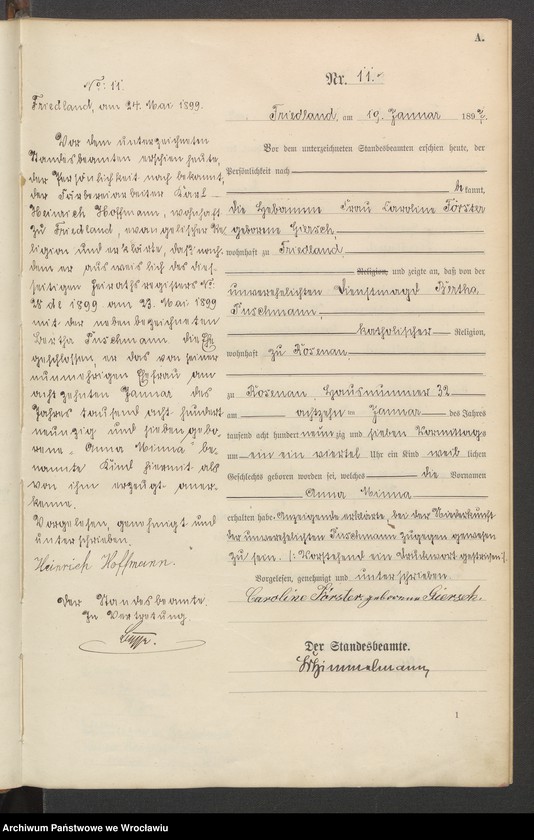 A.
No: 11.
Friedland, am 24. Mai 1899.
Vor dem unterzeichneten
Standesbeamten erschien heute,
der Persönlichkeit nach bekannt,
der Färbereiarbeiter Karl
Heinrich Hoffmann, wohnhaft
zu Friedland, evangelischer Re-
ligion und erklärte, daß nach-
dem er ausweislich des dies-
seitigen Heirathsregisters No.
28 de 1899 am 23. Mai 1899
mit der nebenbezeichneten
Bertha Puschmann die Ehe
geschlossen, er das von seiner
nunmehrigen Ehefrau am
achtzehnten Januar des
Jahres tausend acht hundert
neunzig und sieben gebo-
rene "Anna Minna" be-
nannte Kind hiermit als
von ihm erzeugt aner-
kenne.
Vorgelesen, genehmigt und
unterschrieben.
Heinrich Hoffmann.
Der Standesbeamte.
In Vertretung
Nr. 11.
Friedland, am 19. Januar 1897.
Vor dem unterzeichneten Standesbeamten erschien heute, der
Persönlichkeit nach
bekannt,
die Hebamme Frau Caroline Förster
geborene Giersch
wohnhaft zu Friedland,
Religion, und zeigte an, daß von der
unverehelichten Dienstmagd Bertha
Puschmann,
katholischer Religion,
wohnhaft zu Rosenau
zu Rosenau, Hausnummer 32
am achtzehn ten Januar des Jahres
tausend acht hundert neunzig und sieben Vormittags
um ein ein viertel Uhr ein Kind weiblichen
Geschlechts geboren worden sei, welches die Vornamen
Anna Minna
erhalten habe. Anzeigende erklärte, bei der Niederkunft
der unverehelichten Puschmann zugegen gewesen
zu sein. /: Vorstehend ein Druckwort gestrichen :/.
Vorgelesen, genehmigt und unterschrieben.
Caroline Förster geborene Giersch.
Der Standesbeamte.
Schimmelmann
1
Archiwum Państwowe we Wrocławiu